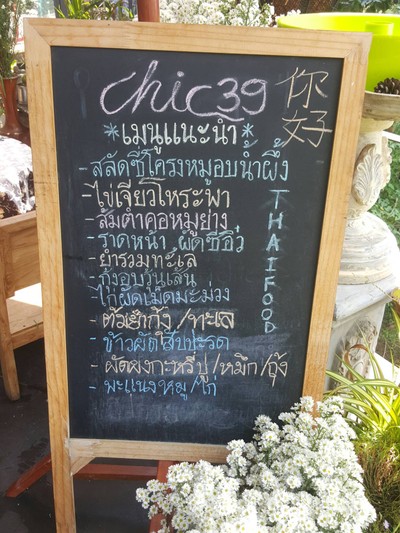 chic39
你好
*เมนูแนะนำ*
-สลัดซี่โครงหมูอบน้ำผึ้ง
-ไข่เจียวโหระพา
-ส้มตำคอหมูย่าง
-ราดหน้า ผัดซีอิ๊ว
-ยำรวมทะเล
-กุ้งอบวุ้นเส้น
-ไก่ผัดเม็ดมะม่วง
-ต้มยำกุ้ง/ทะเล
-ข้าวผัดสัปปะรด
-ผัดผงกะหรี่ปู/หมึก/กุ้ง
-พะแนงหมู/ไก่
THAIFOOD